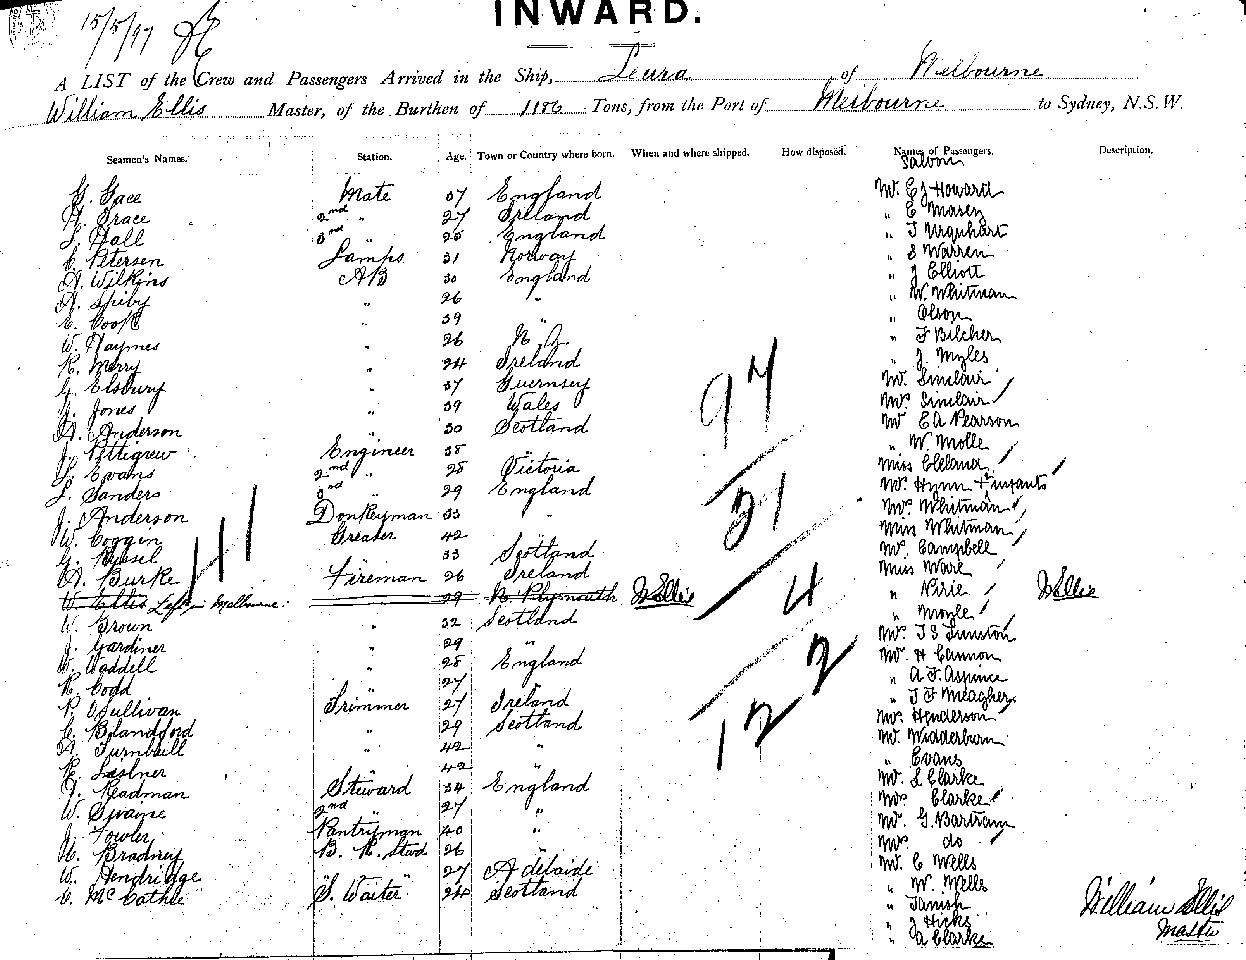 15/5/97
INWARD.
A LIST of the Crew and Passengers Arrived in the Ship, Leura of Melbourne
William Ellis Master, of the Burthen of 1186 Tons, from the Port of Melbourne to Sydney, N.S.W.
Seamen's Names. Station. Age. Town or Country where born. When and where shipped. How disposed. Names of Passengers. Description.
Saloon
G. Gace Mate 37 England Mr. E J Howard
H. Grace 2nd " 27 Ireland " E Masey
L. Hall 3rd " 25 England " J Urquhart
C. Petersen Lamps 31 Norway " S Warren
A. Wilkins AB 30 England " J Elliott
A. Spiby " 26 " " W. Whitman
E. Cook " 39 " " Olson
W. Haymes " 26 " F Bilcher
R. Merry " 24 Ireland " J. Myles
G. Elsbury " 37 Guernsey Mr. Sinclair
J. Jones " 39 Wales Mrs Sinclair
A. Anderson " 30 Scotland Mr EA Pearson
J. Pettigrew Engineer 38 " " W. Molle
L. Evans 2nd " 25 Victoria Miss Cleland
L. Sanders 3rd " 29 England Mrs Hynn + infants
J. Anderson Donkeyman 33 " Mrs Whitman
W. Coggin Greaser 42 Miss Whitman
G. 33 Scotland Mr. Campbell
A. Burke Fireman 26 Ireland Miss Ware
W. Ellis Left in Melbourne. 29 N. Plymouth W Ellis " Pirie W Ellis
W. Brown " 32 Scotland " Moyle
J. Gardiner " 29 " Mr. J S Funston
W. Waddell " 25 England Mr H Cannon
R. Codd 27 " A. F. Aspince
P. O'Sullivan Trimmer 27 Ireland " J F Meagher
C. Blandford " 29 Scotland Mrs Henderson
A. Turnbull " 42 " Mr. Widderburn
R. Lislner " 42 " " Evans
J. Readman Steward 34 England Mr. L Clarke
W. Swayne 2nd " 27 " Mrs Clarke
J. Fowler Pantryman 40 " Mr. G. Bartram
H. Bradney B. R. Stwd 26 Mrs do
W. Hendridge " 27 Adelaide Mr. C Wells
C. McCathie "S. Waiter" 24 Scotland " W. Wells
" Tanish
" J Hicks
" A Clarke
97
31
4
2
12
41
William Ellis
Master